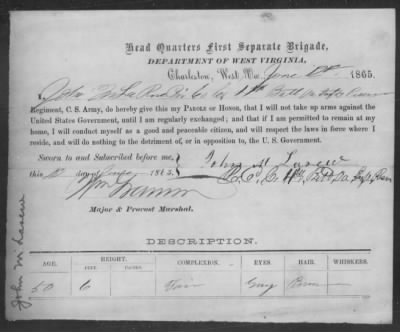 Head Quarters First Separate Brigade,
DEPARTMENT OF WEST VIRGINIA,
Charleston, West Va., June 1865.
I, John
Regiment, C. S. Army, do hereby give this my PAROLE OF HONOR, that I will not take up arms against the
United States Government, until I am regularly exchanged; and that if I am permitted to remain at my
home, I will conduct myself as a good and peaceable citizen, and will respect the laws in force where I
reside, and will do nothing to the detriment of, or in opposition to, the U. S. Government.
Sworn to and Subscribed before me,
John M Larew
this day of 1865.
Major & Provost Marshal.
DESCRIPTION.
AGE. HEIGHT. COMPLEXION. EYES. HAIR. WHISKERS.
FEET. INCHES.
50 6 Fair Grey
John M Larew